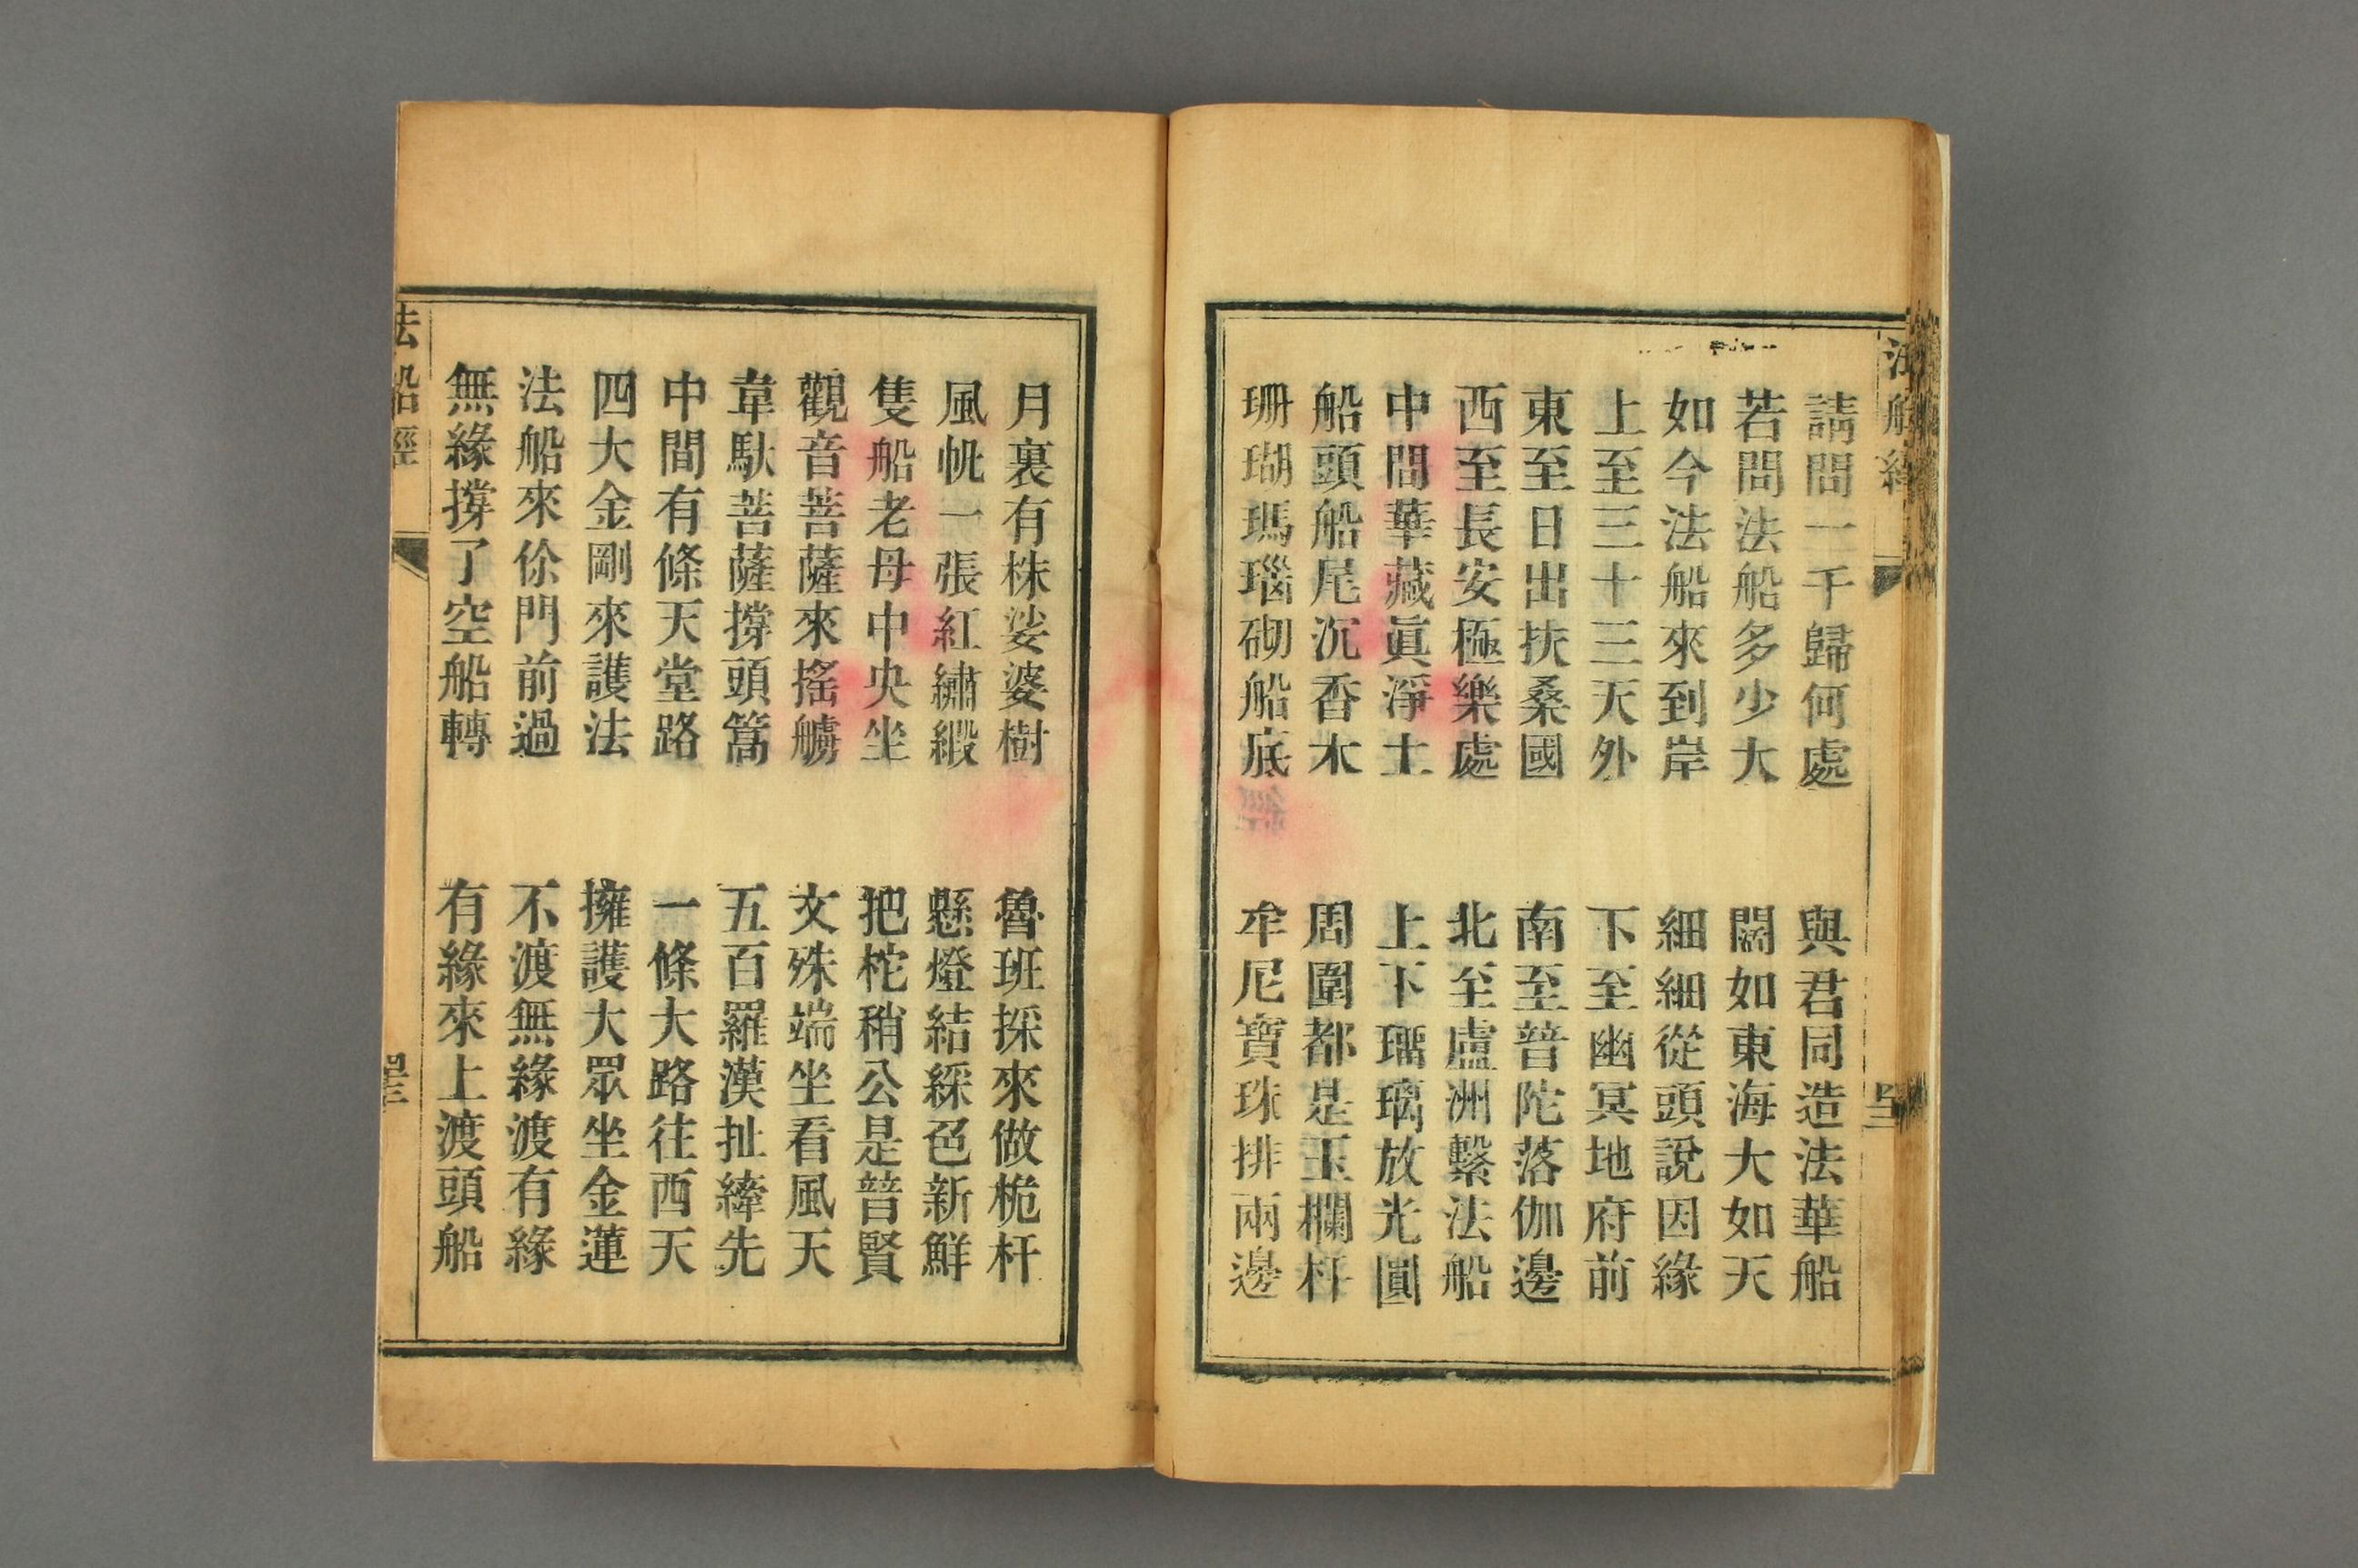 法船經
請問一千歸何處　與君同造法華船
若問法船多少大　闊如東海大如天
如今法船來到岸　細細從頭說因緣
上至三十三天外　下至幽冥地府前
東至日出扶桑國　南至普陀落伽邊
西至長安極樂處　北至盧洲繫法船
中間華藏眞淨土　上下瑠璃放光圓
船頭船尾沉香木　周圍都是玉欄杆
珊瑚瑪瑙砌船底　牟尼寶珠排兩邊
月裏有株娑婆樹　魯班採來做桅杆
風帆一張紅繡緞　懸燈結綵色新鮮
隻船老母中央坐　把柁稍公是普賢
觀音菩薩來搖艣　文殊端坐看風天
韋馱菩薩撐頭篙　五百羅漢扯縴先
中間有條天堂路　一條大路往西天
四大金剛來護法　擁護大眾坐金蓮
法船來你門前過　不渡無緣渡有緣
無緣撐了空船轉　有緣來上渡頭船
法船經